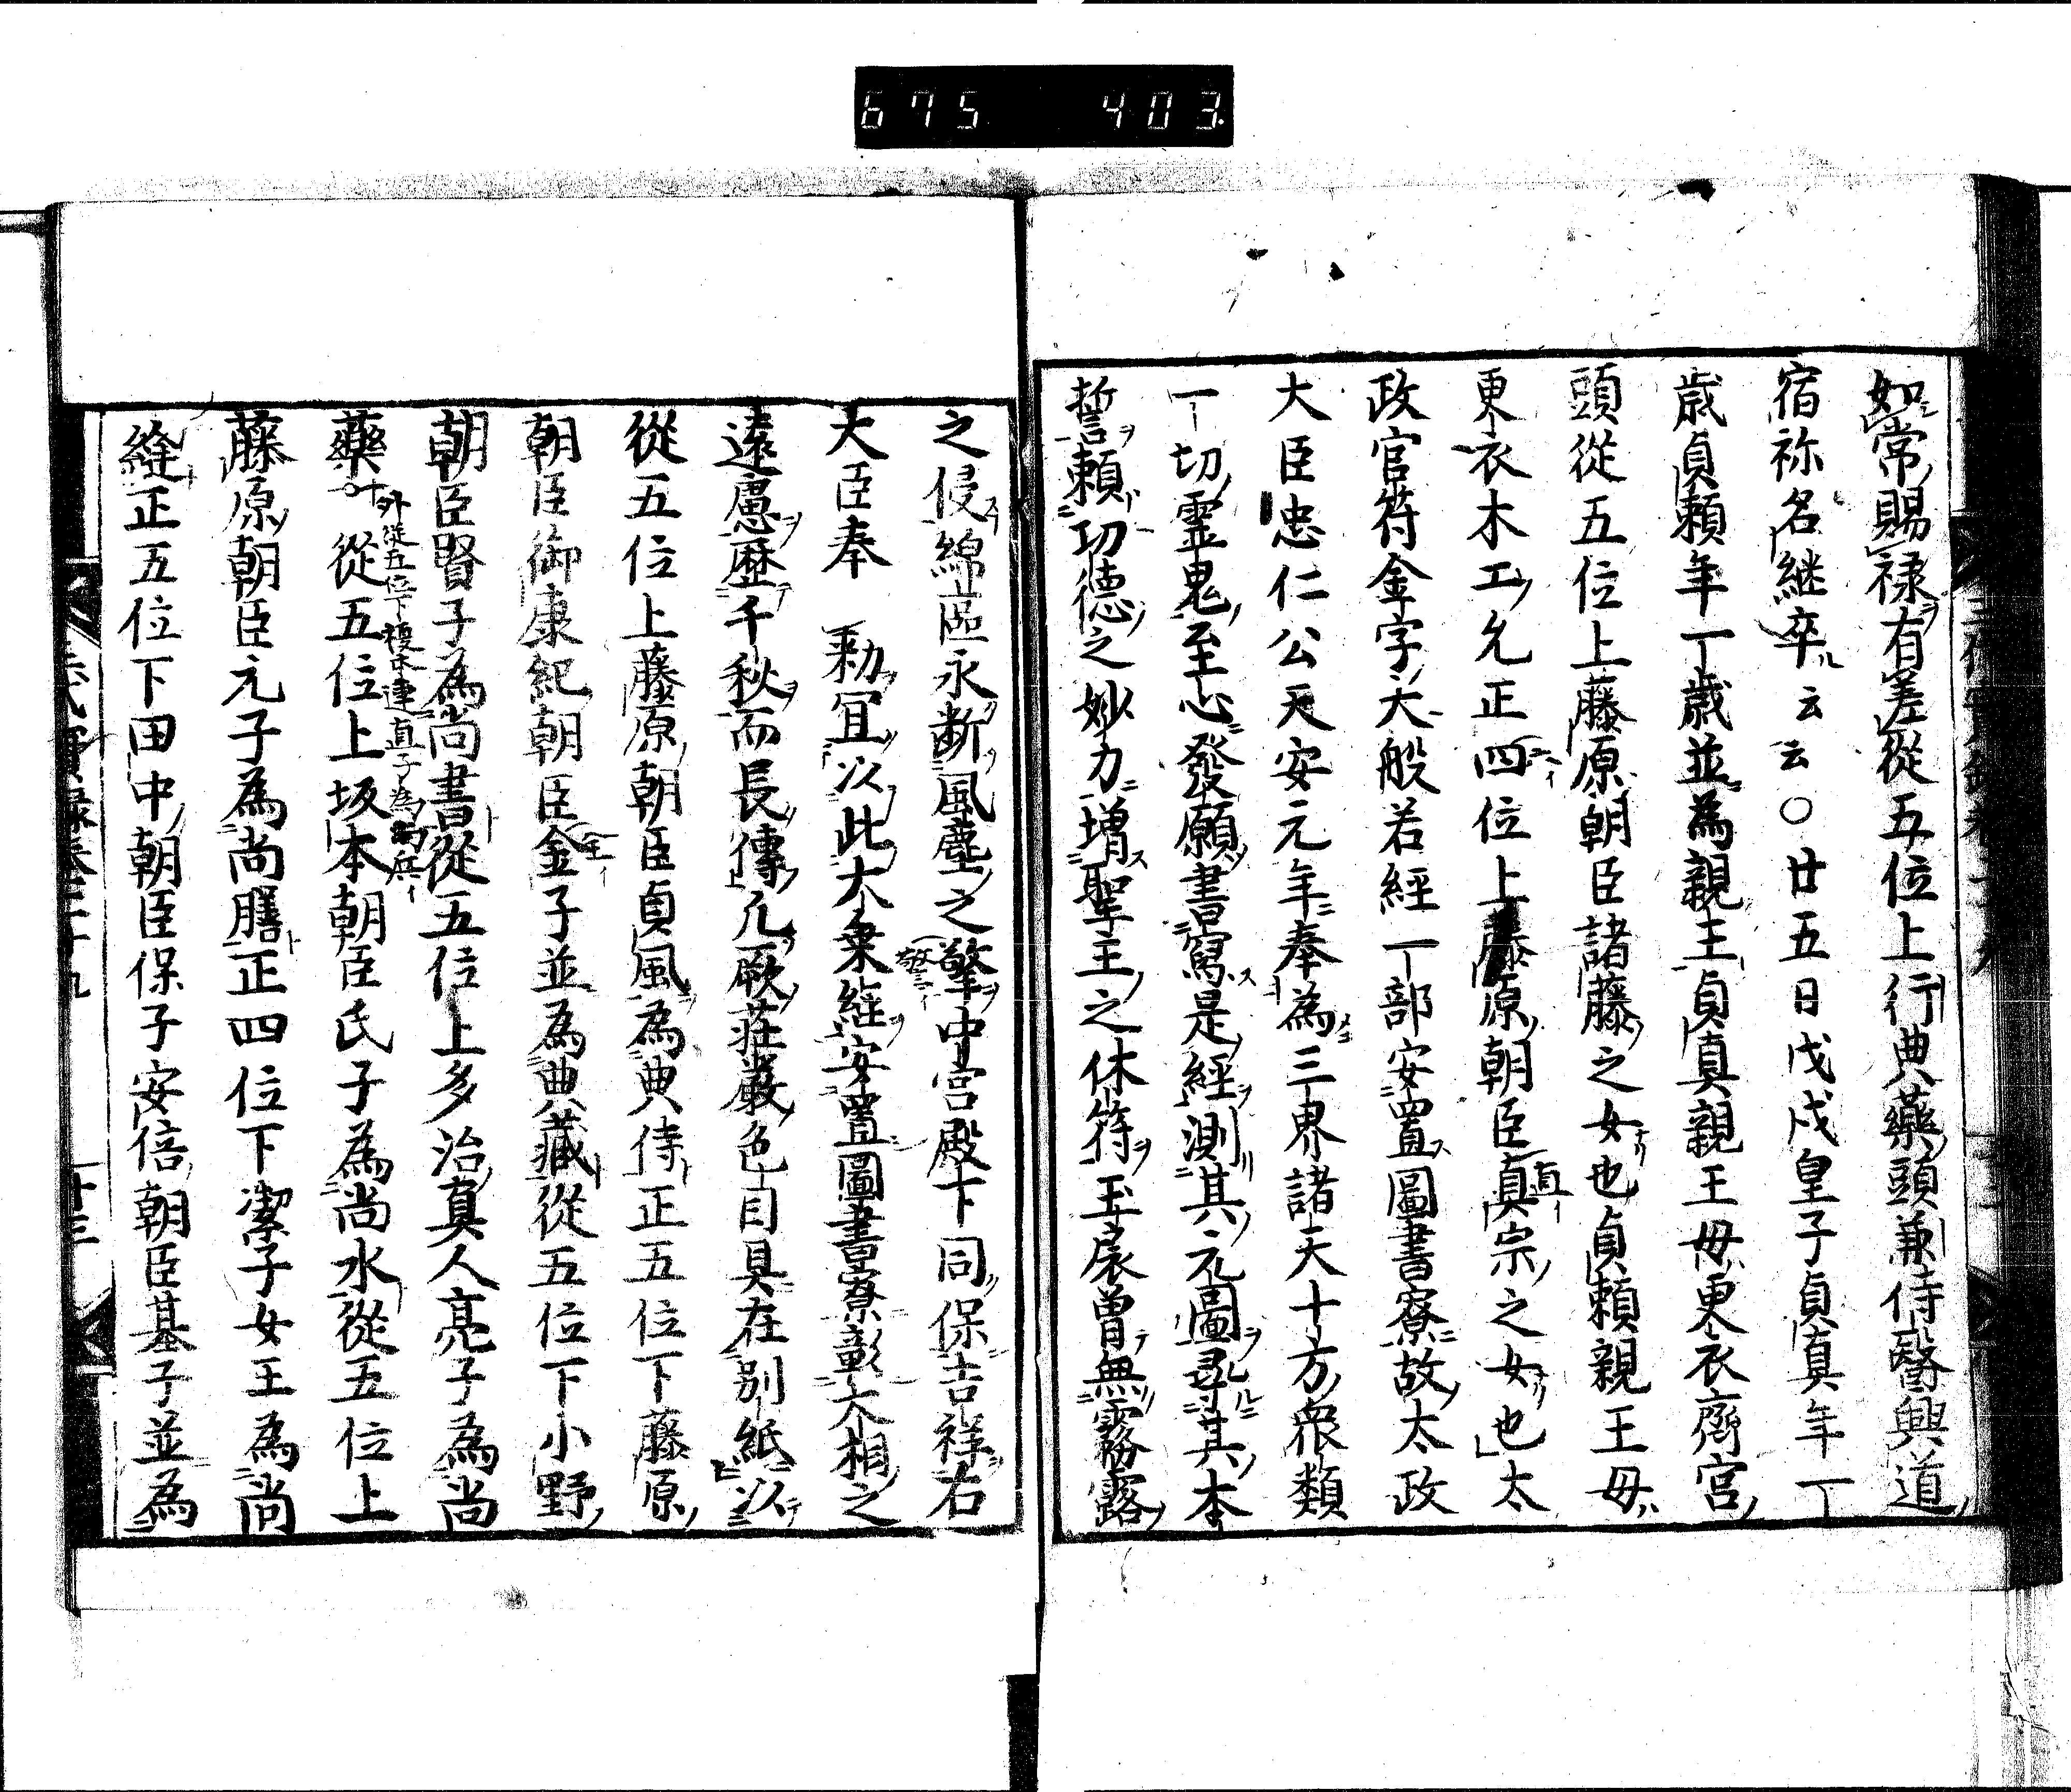 675 403
如常賜禄有差從五位上行典藥頭兼侍醫興道
宿祢名継卒云云〇廿五日戊戌皇子貞真年一
歳貞頼年一歳並為親王貞真親王母更衣齊宮
頭從五位上藤原朝臣諸藤之女也貞頼親王母
更衣木工允正四位上藤原朝臣真宗之女也太
政官符金字大般若經一部安置圖書寮故太政
大臣忠仁公天安元年奉為三界諸天十方衆類
一切霊鬼至心發願書寫是經測其元圖尋其本
誓頼功徳之妙力増聖主之休符玉扆曽無霧露
之侵綿區永断風塵之擎中宮殿下同保吉祥右
大臣奉 勅冝以此大乗雄安置圖書寮彰大相之
遠慮歴千秋而長傳凡厥荘嚴色目具在别紙以
從五位上藤原朝臣貞風為典侍正五位下藤原
朝臣御康紀朝臣金子並為典藏從五位下小野
朝臣賢子為尚書從五位上多治真人亮子為尚
藥從五位上坂本朝臣氏子為尚水從五位上
外從五位下榎本連直子為尚兵イ
藤原朝臣元子為尚膳正四位下潔子女王為尚
縫正五位下田中朝臣保子安倍朝臣基子並為